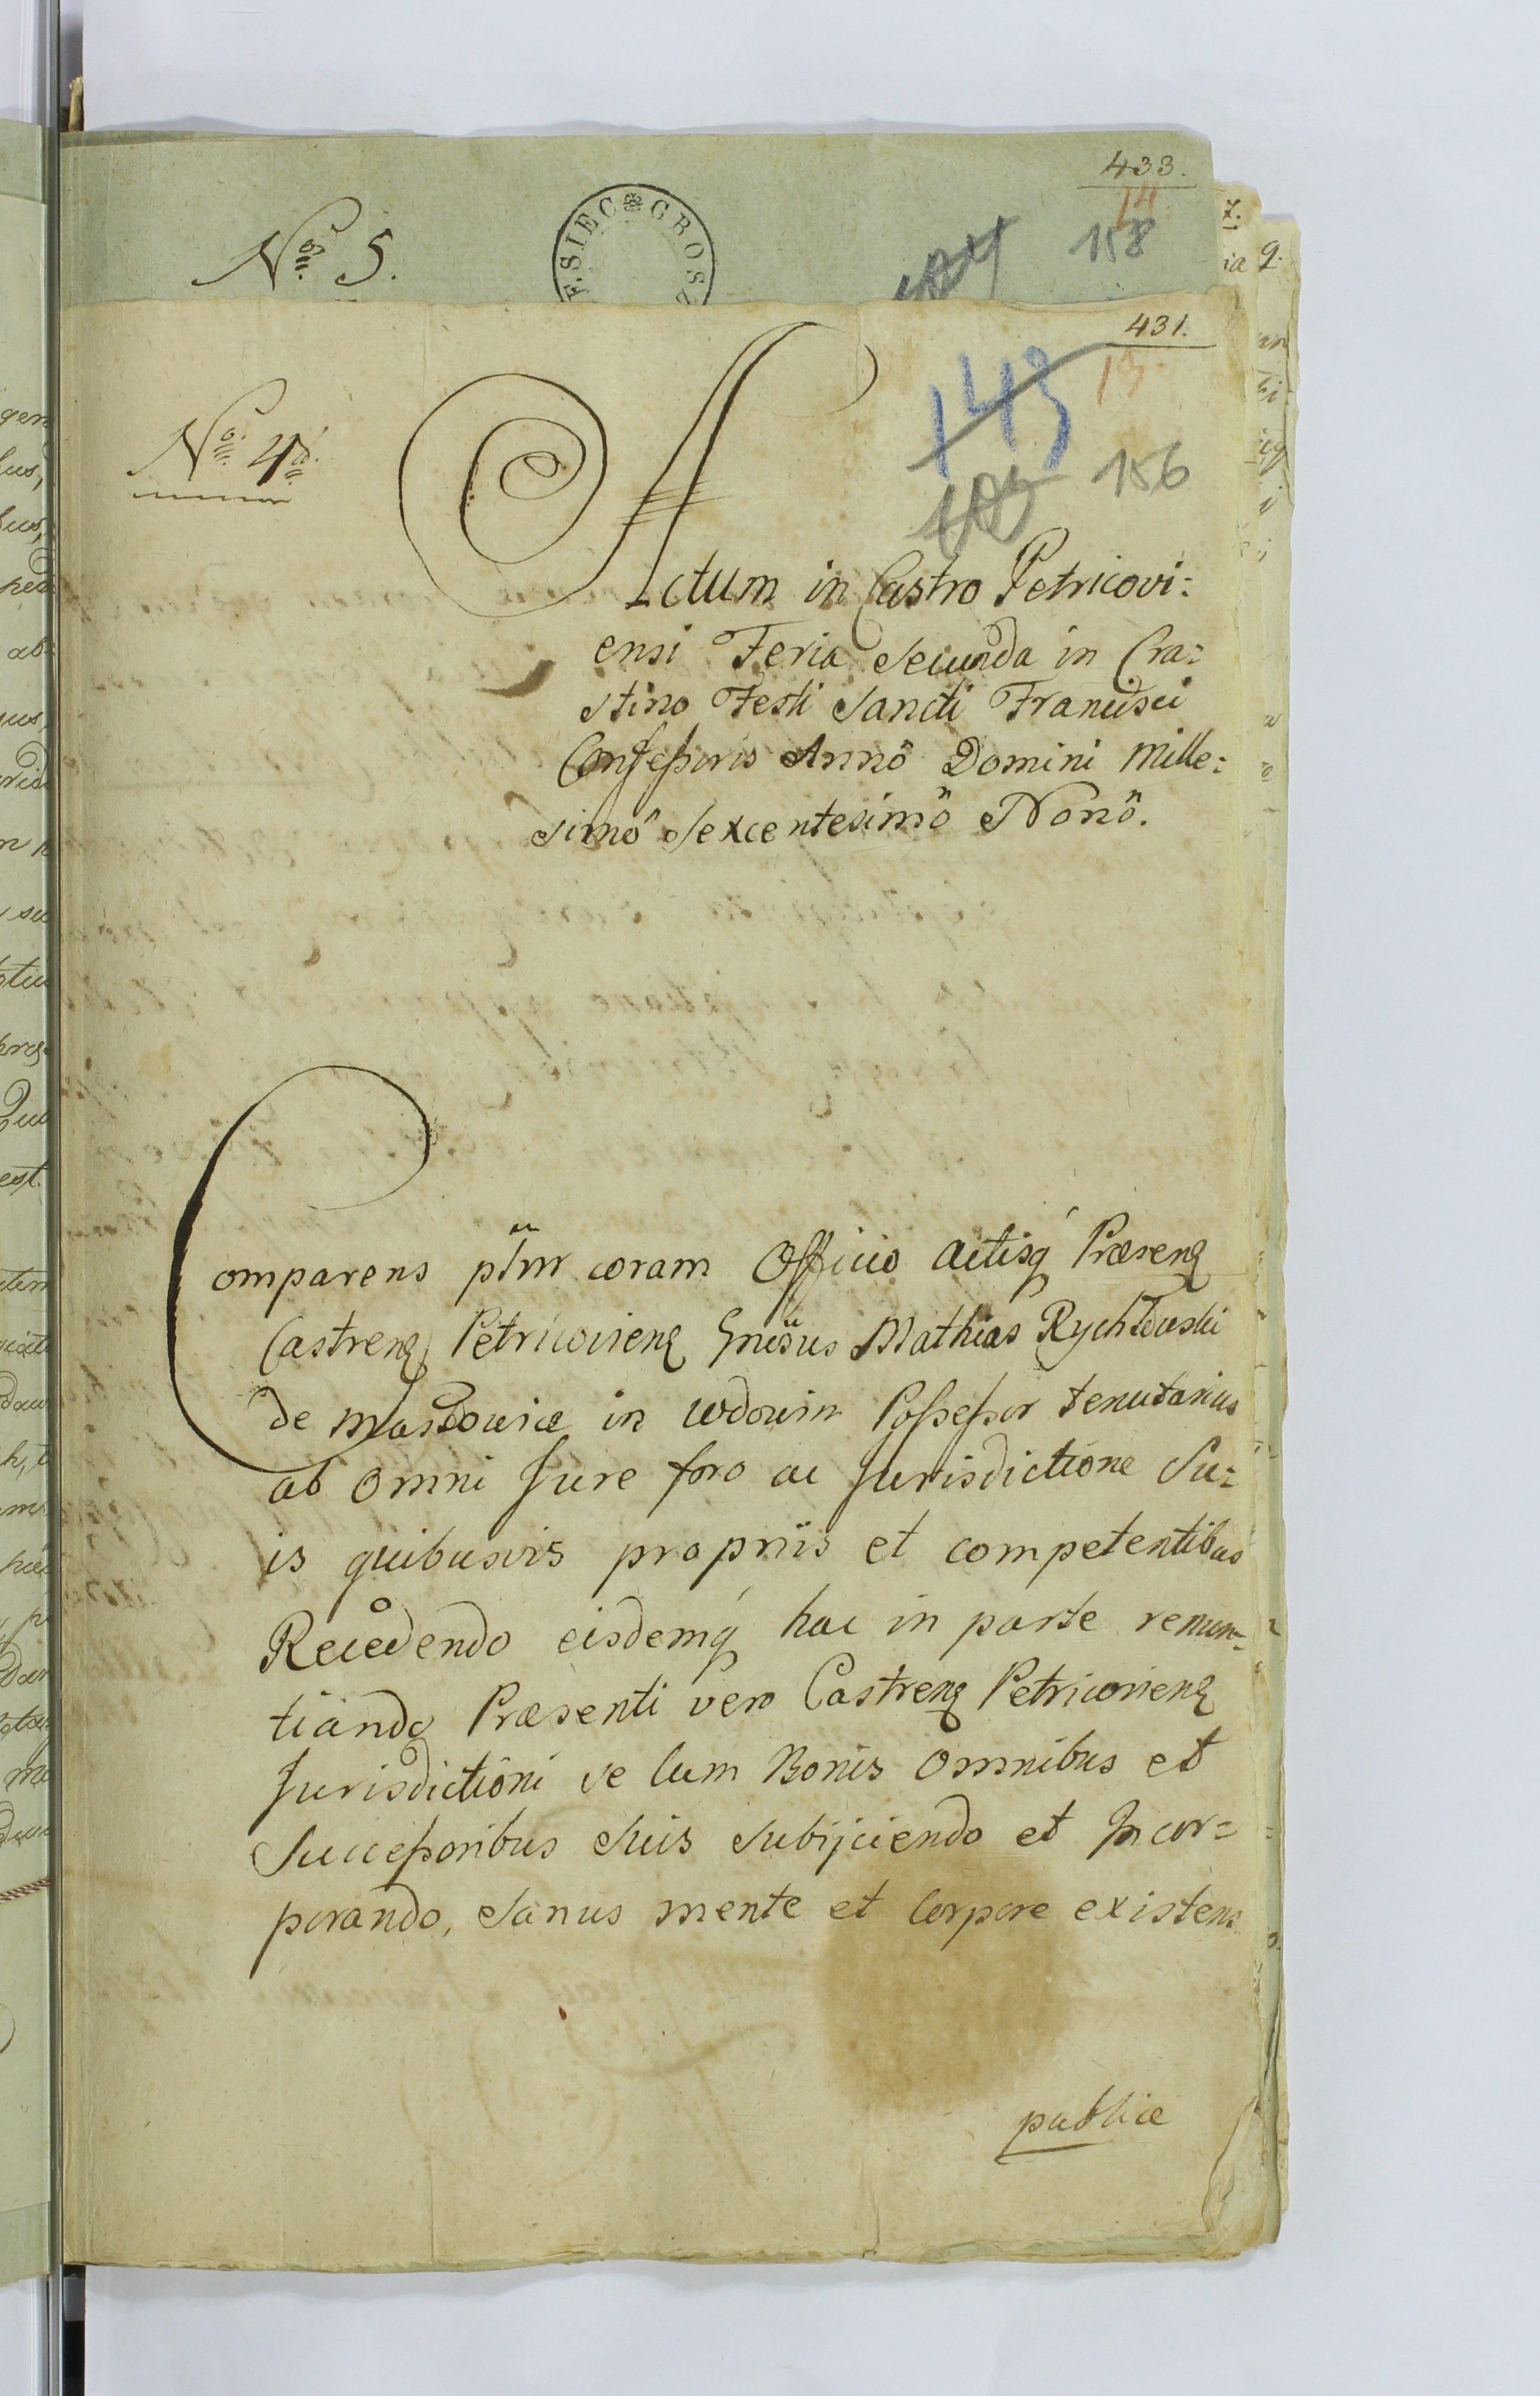 433.
14
158
No 5.
F. SIEC GROSZ
431.
143
13
156
No 4to.
Actum in Castro Petricovi:
ensi Feria Secunda in Cra:
stino Festi Sancti Francisci
Confessoris Annô Domini Mille:
simô Sexcentesimô Nonô.
Comparens pslnr coram Officio Actisq́ Præsenꝗ
Castrenꝗ Petricovienꝗ Gnösus Mathias Rychłowski
de Masłowice in Wdowin Possessor tenutarius
ab omni Jure foro ac Jurisdictione Su:
is quibusvis propriis et competentibus
Recedendo eisdemq́ hac in parte renun:
tiando Præsenti vero Castrenꝗ Petricovienꝗ
Jurisdictioni se cum Bonis Omnibus et
Successoribus Suis Subijciendo et Incor:
porando, Sanus mente et Corpore existens
publice